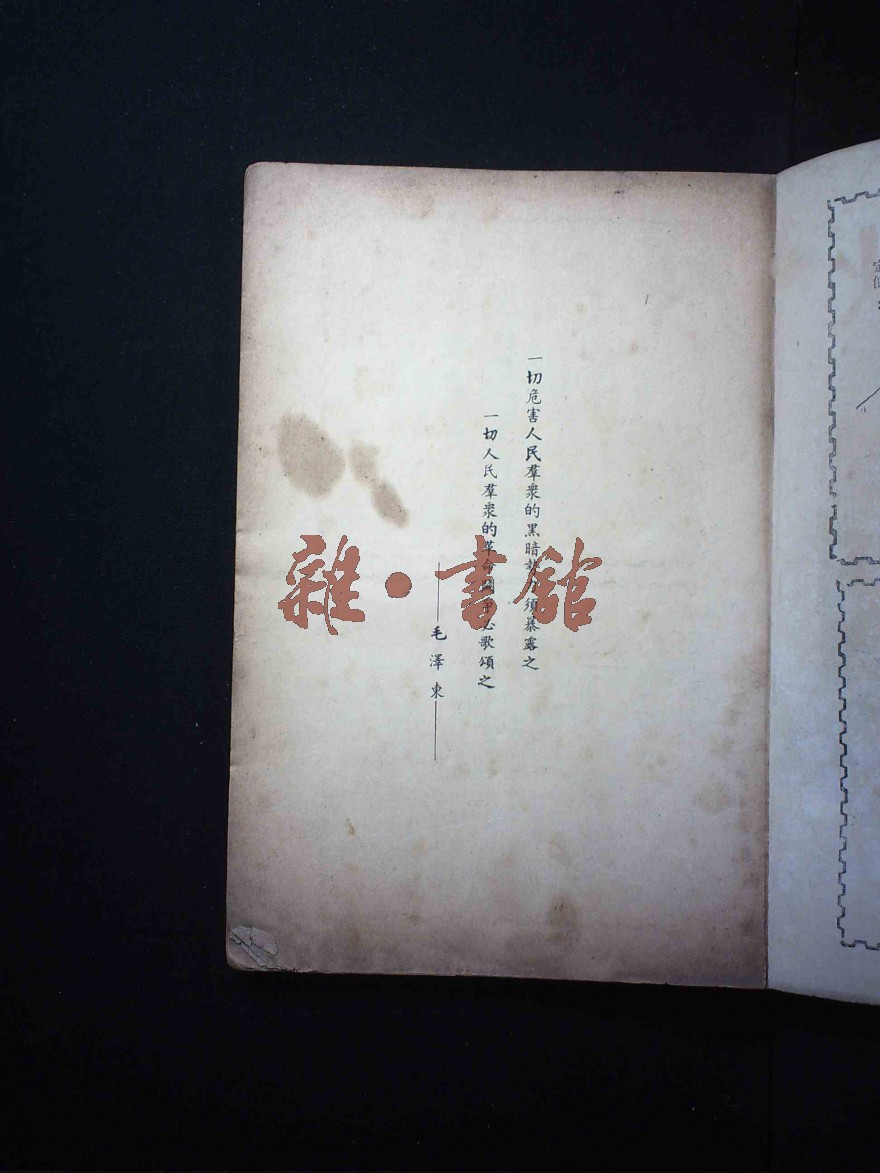 一切危害人民羣衆的黑暗勢力須暴露之
一切人民羣衆的革命鬭爭必歌頌之
——毛澤東——
雜·書館